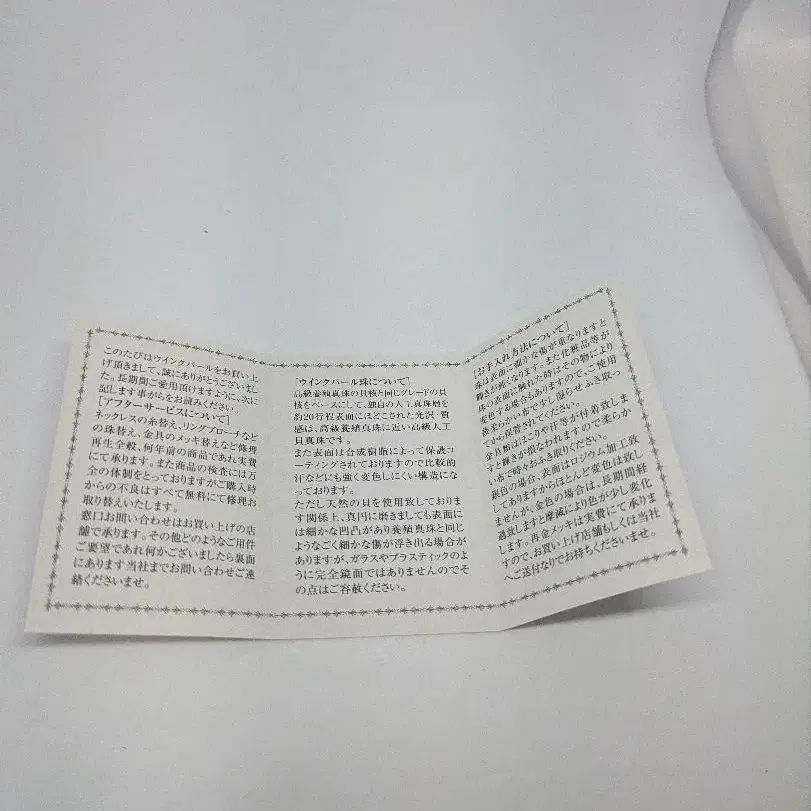 このたびはウインクパールをお買い上
げ頂きまして、誠にありがとうございまし
た。長期間ご愛用頂けますように、次に
記します事がらをお読みください。
［アフターサービスについて］
ネックレスの糸替え、リングブローチなど
の珠替え、金具のメッキ替えなど修理
再生全般、何年前の商品であれ実費
にて承ります。また商品の検査には万
全の体制をとっておりますがご購入時
からの不良はすべて無料にて修理お
取り替えいたします。
窓口お問い合わせはお買い上げの店
舗で承ります。その他どのようなご用件
ご要望であれ何かございましたら裏面
にあります当社までお問い合わせご連
絡くださいませ。
［ウインクパール珠について］
高級養殖真珠の貝核と同じグレードの貝
核をベースにして、独自の人工真珠層を
約20行程表面にほどこされた光沢・質
感は、高級養殖真珠に近い高級人工
貝真珠です。
また表面は合成樹脂によって保護コ
ーティングされておりますので比較的
汗などにも強く変色しにくい構造にな
っております。
ただし天然の貝を使用致しておりま
す関係上、真円に磨きましても表面に
は細かな凹凸があり養殖真珠と同じ
ようなごく細かな傷が浮き出る場合が
ありますが、ガラスやプラスティックのよ
うに完全鏡面ではありませんのでそ
の点はご容赦ください。
［お手入れ方法について］
珠は表面に細かな傷が重なりますと
輝きが鈍くなります。また化粧品等が
珠の表面に触れた時はその物により
変色する場合もありますので、ご使用
後柔らかい布で少し湿らせふき取っ
てから保管されてください。
金具類はほこりや汗等が付着致しま
すと輝きが損なわれますので柔らか
い布で時々おふき取りください。
銀色の場合、表面はロジウム加工致
してありますからほとんど変色は致し
ませんが、金色の場合は、長期間経
過致しますと摩滅により色が少し変化
します。再金メッキは実費にて承りま
すので、お買い上げ店舗もしくは当社
へご送付なりでお持ちくださいませ。